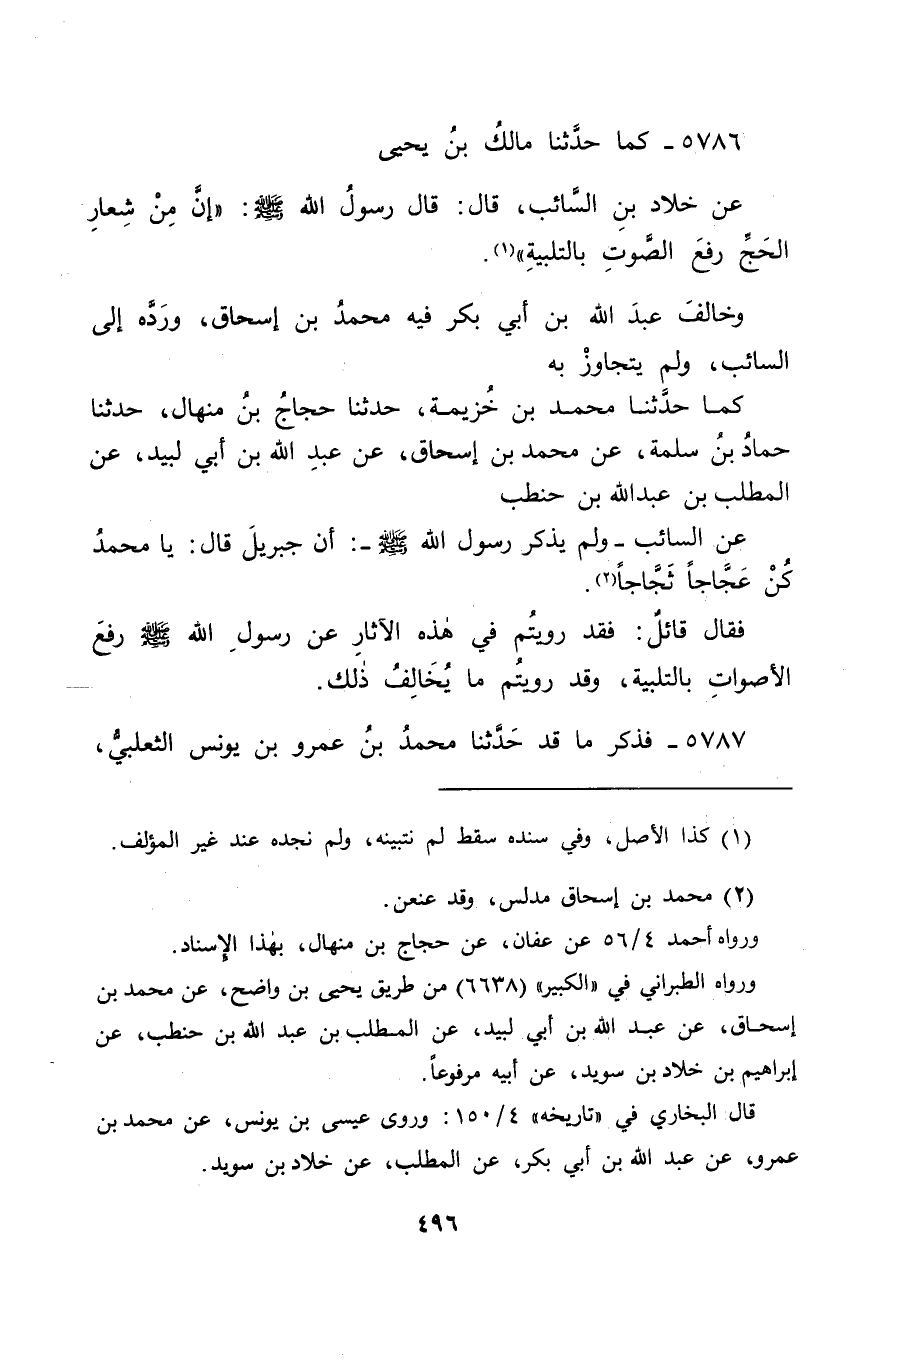 ٥٧٨٦ ـ كما حدَّثنا مالكُ بنُ يحيى
عن خلاد بنِ السَّائب، قال: قال رسولُ الله ﷺ: «إنَّ مِنْ شِعارِ
الحَجِّ رفعَ الصَّوتِ بالتلبيةِ»(١).
وخالفَ عبدَ الله بن أبي بكر فيه محمدُ بن إسحاق، ورَدَّه إلى
السائب، ولم يتجاوزْ به
كما حدَّثنا محمد بن خُزيمة، حدثنا حجاجُ بنُ منهال، حدثنا
حمادُ بنُ سلمة، عن محمد بن إسحاق، عن عبدِ الله بن أبي لبيد، عن
المطلب بن عبدالله بن حنطب
عن السائب ـ ولم يذكر رسول الله ﷺ ـ: أن جبريلَ قال: يا محمدُ
كُنْ عَجَّاجاً ثَجَّاجاً(٢).
فقال قائلٌ: فقد رويتُم في هٰذه الآثارِ عن رسولِ الله ﷺ رفعَ
الأصواتِ بالتلبية، وقد رويتُم ما يُخَالِفُ ذٰلك.
٥٧٨٧ ـ فذكر ما قد حَدَّثنا محمدُ بنُ عمرو بن يونس الثعلبيُّ،
(١) كذا الأصل، وفي سنده سقط لم نتبينه، ولم نجده عند غير المؤلف.
(٢) محمد بن إسحاق مدلس، وقد عنعن.
ورواه أحمد ٥٦/٤ عن عفان، عن حجاج بن منهال، بهٰذا الإِسناد.
ورواه الطبراني في «الكبير» (٦٦٣٨) من طريق يحيى بن واضح، عن محمد بن
إسحاق، عن عبد الله بن أبي لبيد، عن المطلب بن عبد الله بن حنطب، عن
إبراهيم بن خلاد بن سويد، عن أبيه مرفوعاً.
قال البخاري في «تاريخه» ١٥٠/٤: وروى عيسى بن يونس، عن محمد بن
عمرو، عن عبد الله بن أبي بكر، عن المطلب، عن خلاد بن سويد.
٤٩٦